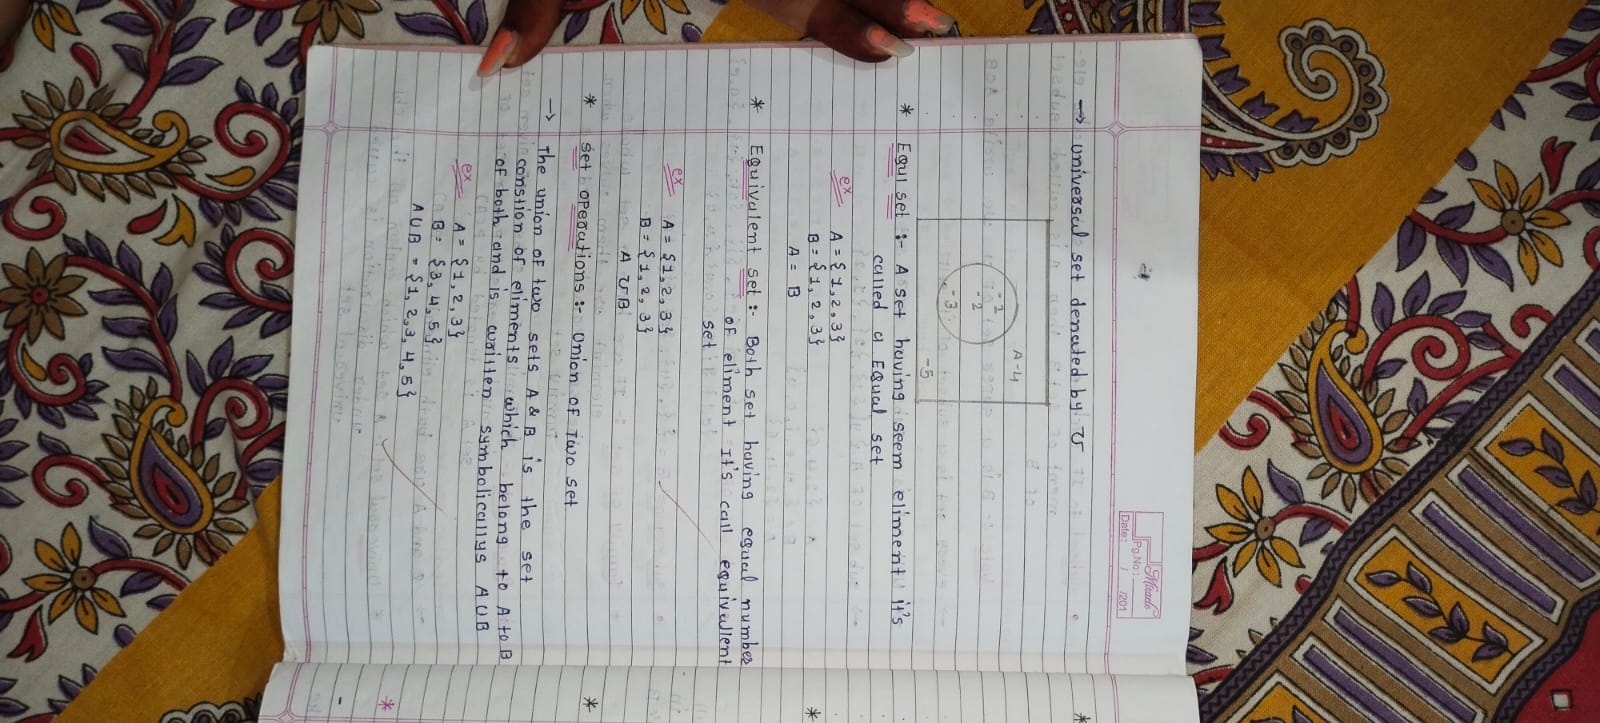 Mirado
Pg.No.:
Date: / /201
→ universal set denoated by U
A -4
-1
-2
-3
-5
* Equl set :- A set having seem eliment it's
called a Equal set
ex A = {1, 2, 3}
B = {1, 2, 3}
A = B
* Equivalent set :- Both set having equal number
of eliment It's call equivalent
set
ex A = {1, 2, 3}
B = {1, 2, 3}
A U B
* set operations :- Union of Two set
→ The union of two sets A & B is the set
constion of eliments which belong to A to B
of both and is written symbolicallys A U B
ex A = {1, 2, 3}
B = {3, 4, 5}
A U B = {1, 2, 3, 4, 5}